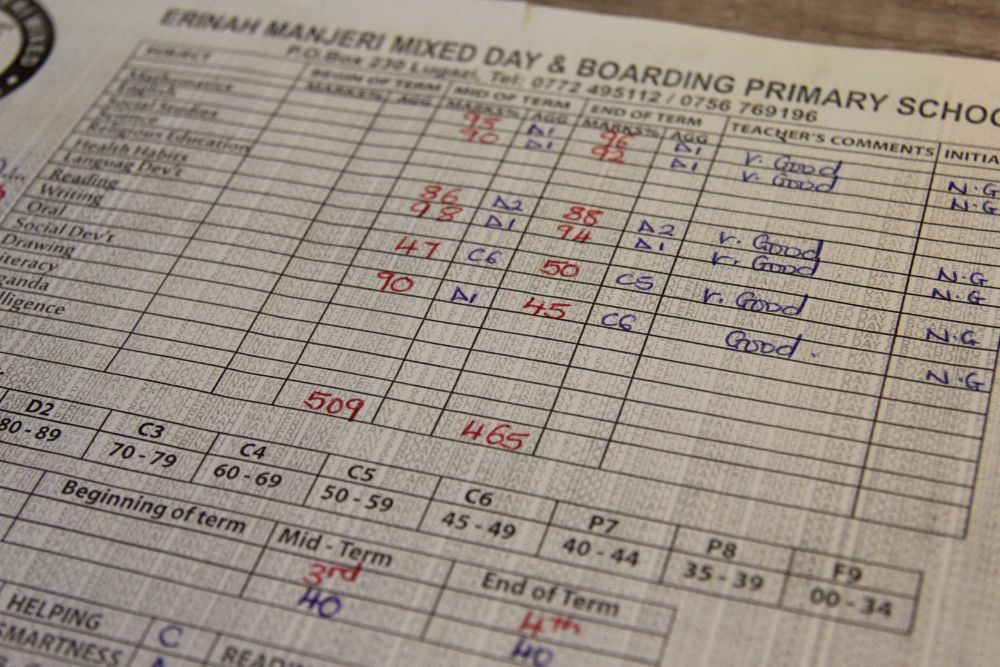 ERINAH MANJERI MIXED DAY & BOARDING PRIMARY SCHOO
P.O Box 230 Lugazi, Tel: 0772 495112 / 0756 769196
SUBJECT BEGIN OF TERM MID OF TERM END OF TERM TEACHER'S COMMENTS INITIA
MARKS% AGG MARKS% AGG MARKS% AGG
Mathematics 95 D1 96 D1 V. Good N.G
English 90 D1 92 D1 V. Good N.G
Social Studies
Science
Religious Education
Health Habits 86 D2 88 D2 V. Good N.G
Languag Dev't 98 D1 94 D1 V. Good N.G
Reading
Writing 47 C6 50 C5 V. Good N.G
Oral
Social Dev't 90 D1 45 C6 Good. N.G
Drawing
iteracy
ganda
lligence
509 465
D2 C3 C4 C5 C6 P7 P8 F9
80 - 89 70 - 79 60 - 69 50 - 59 45 - 49 40 - 44 35 - 39 00 - 34
Beginning of term Mid - Term End of Term
3rd 4th
40 40
HELPING C
SMARTNESS READIN